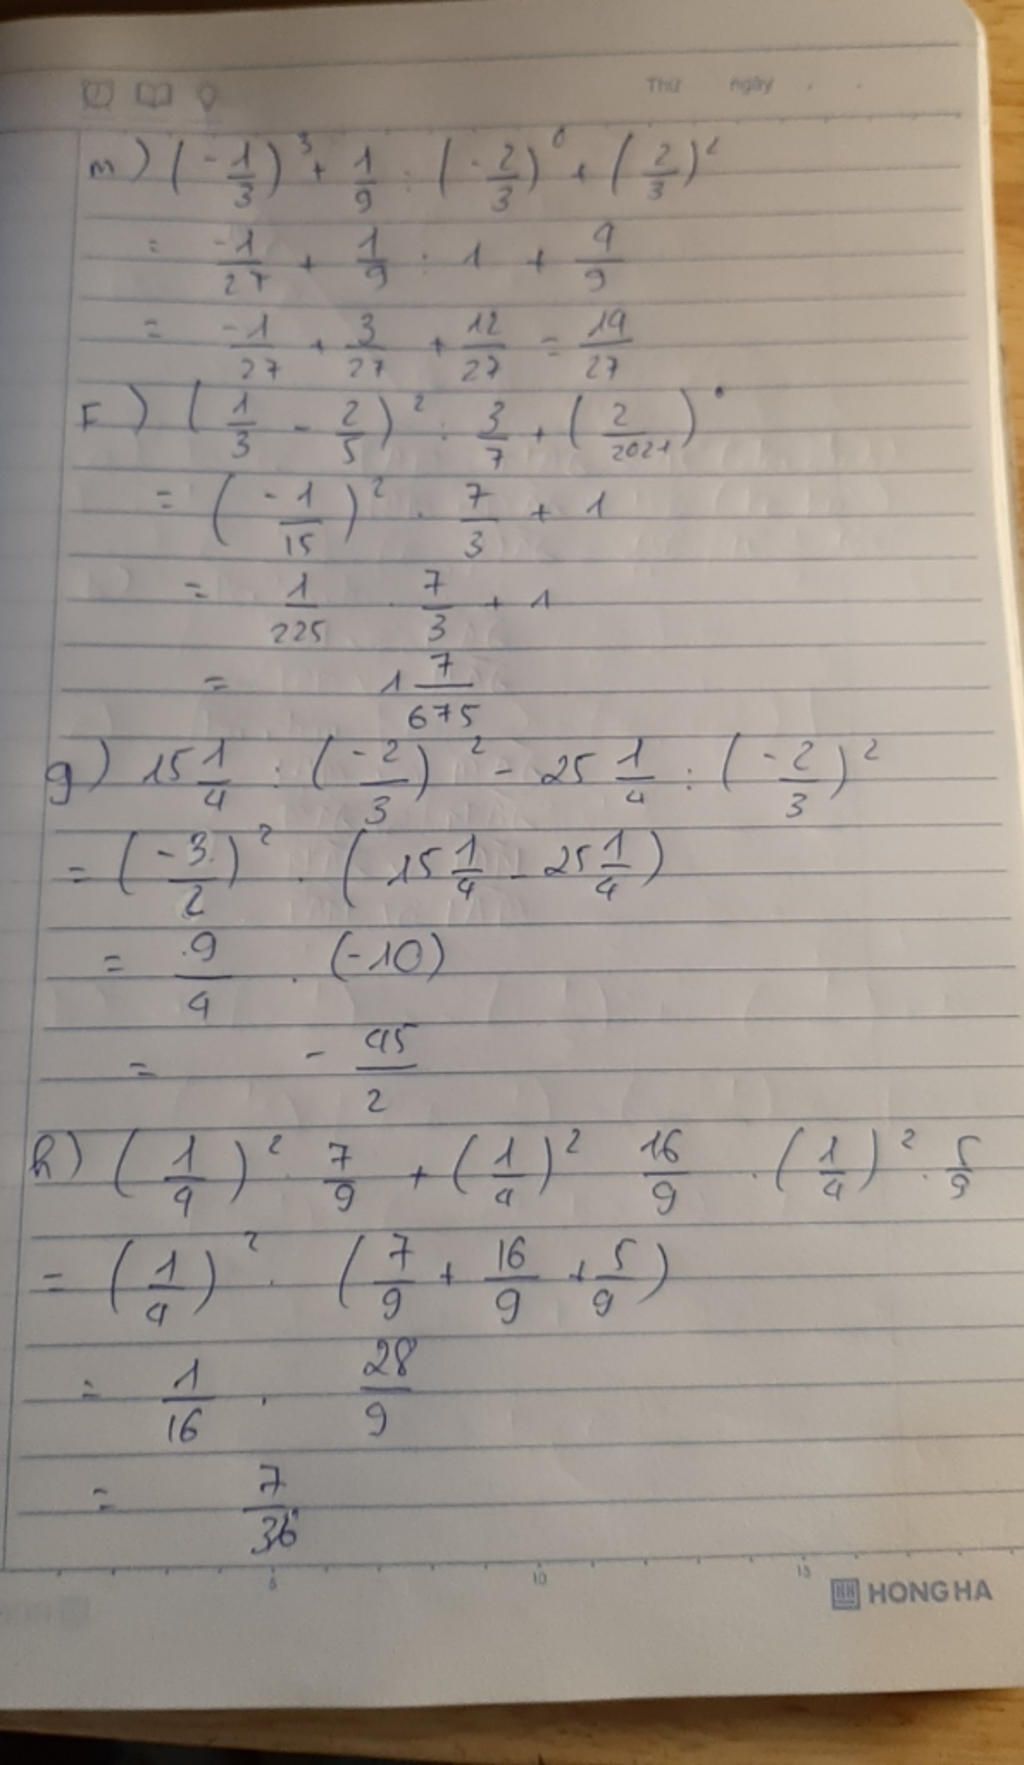 Thứ ngày . .
m) (-1/3)³ + 1/9 : (-2/3)⁰ + (2/3)²
= -1/27 + 1/9 : 1 + 4/9
= -1/27 + 3/27 + 12/27 = 14/27
F) (1/3 - 2/5)² : 3/7 + (2/2021)⁰
= (-1/15)² . 7/3 + 1
= 1/225 . 7/3 + 1
= 1 7/675
g) 15 1/4 : (-2/3)² - 25 1/4 : (-2/3)²
= (-3/2)² . (15 1/4 - 25 1/4)
= 9/4 . (-10)
= - 45/2
h) (1/4)² . 7/9 + (1/4)² 16/9 . (1/4)² . 5/9
= (1/4)² . (7/9 + 16/9 + 5/9)
= 1/16 . 28/9
= 7/36
5 10 15
HH HONG HA